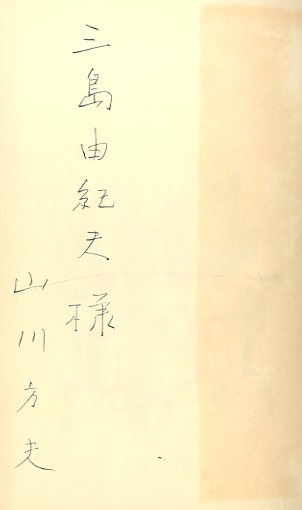 三島由紀夫様
山川方夫